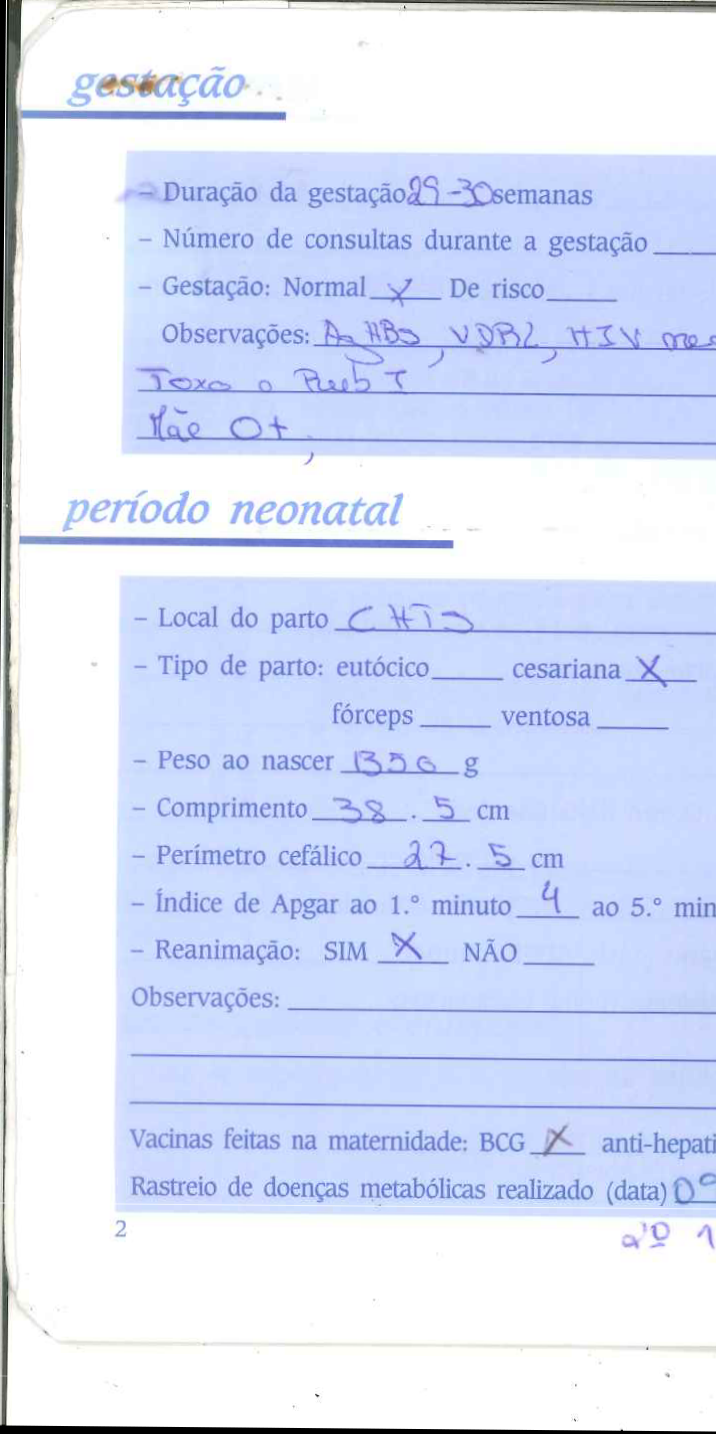 gestação
– Duração da gestação 29-30 semanas
– Número de consultas durante a gestação
– Gestação: Normal X De risco
Observações: Ag HBs, VDRL, HIV neg
Toxo e Rub I
Mãe O+,
período neonatal
– Local do parto
– Tipo de parto: eutócico cesariana X
fórceps ventosa
– Peso ao nascer 1350 g
– Comprimento 38.5 cm
– Perímetro cefálico 27.5 cm
– Índice de Apgar ao 1.° minuto 4 ao 5.° min
– Reanimação: SIM X NÃO
Observações:
Vacinas feitas na maternidade: BCG X anti-hepati
Rastreio de doenças metabólicas realizado (data) 09
2 2º 1